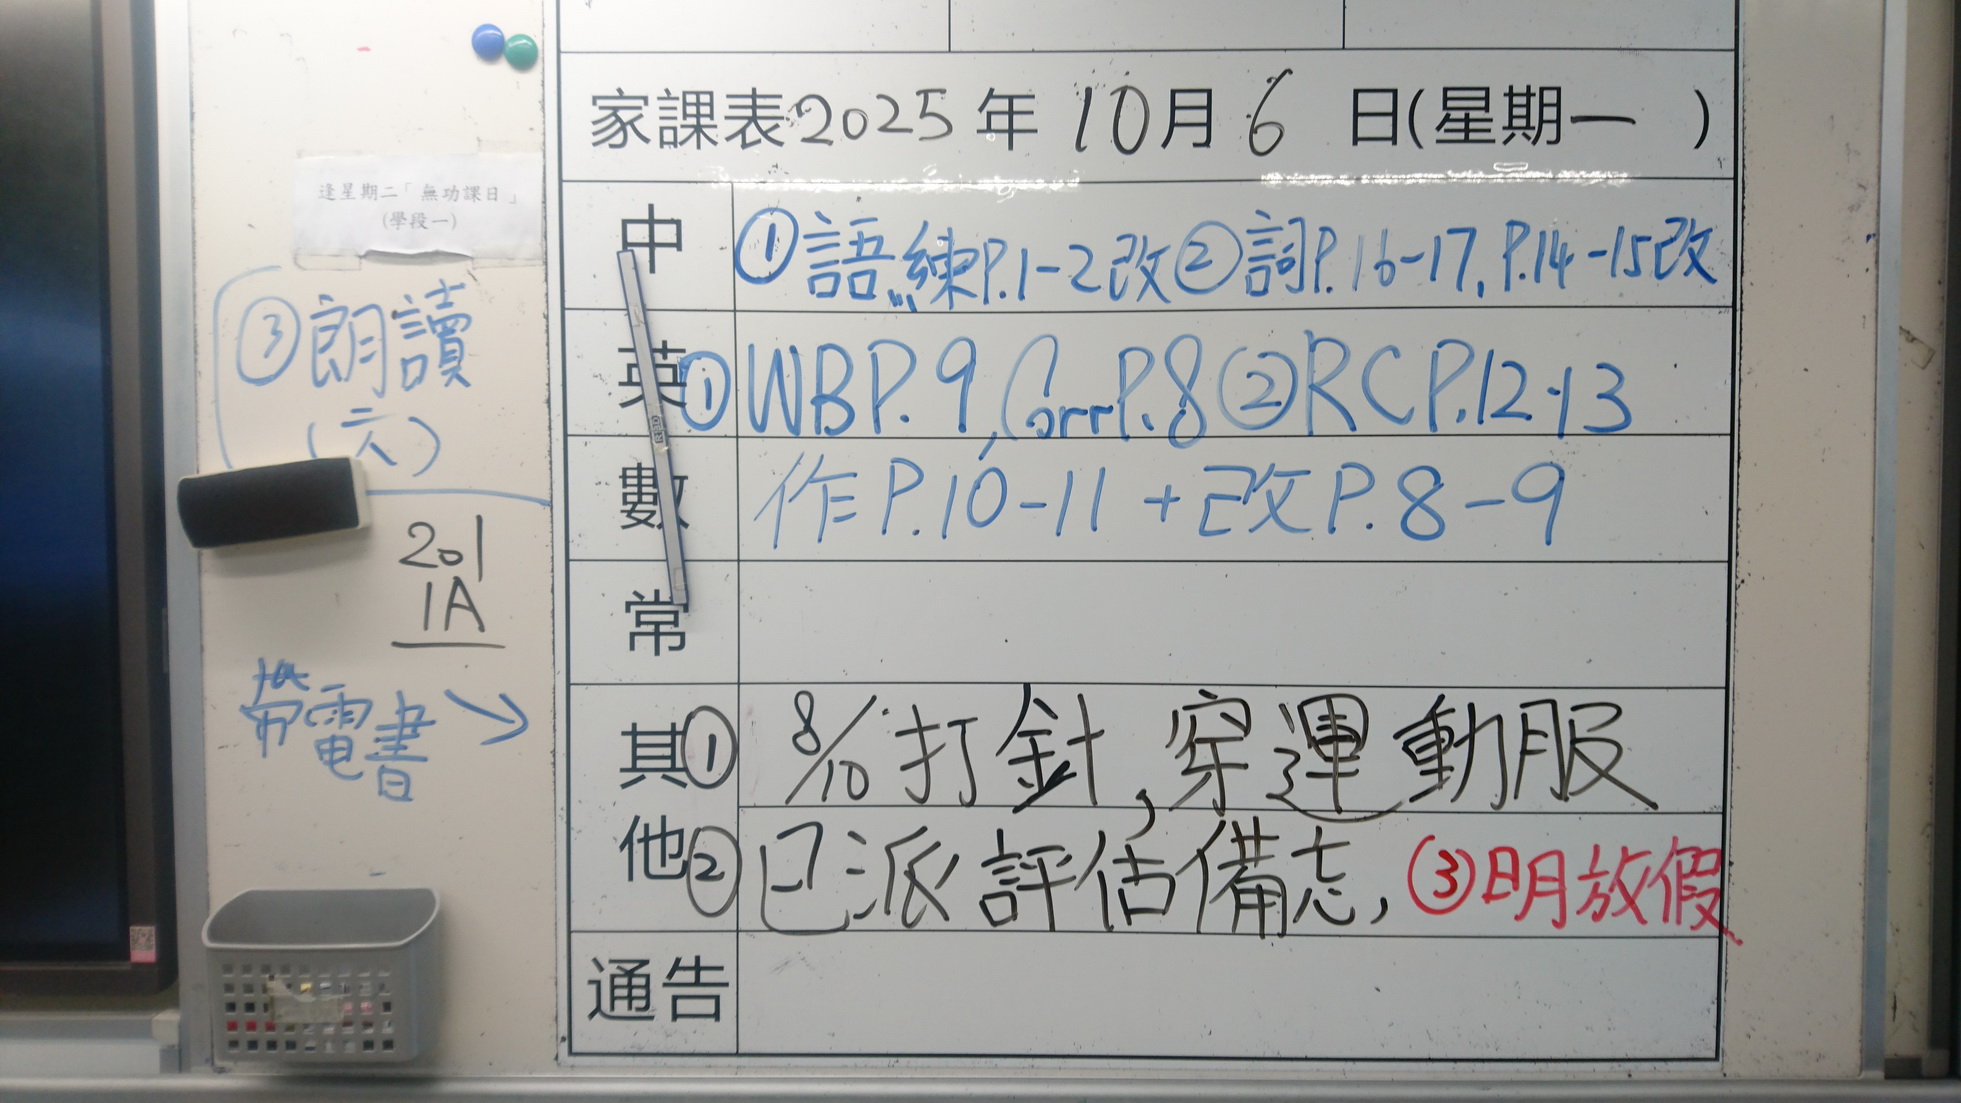 家課表2025年10月6日(星期一)
逢星期二「無功課日」
(學段一)
中 ①語練P.1-2改②詞P.16-17,P.14-15改
③朗讀
(六)
英 ①WBP.9,CorrP.8②RCP.12-13
數 作P.10-11+改P.8-9
201
1A
常
帶電書→
其他 ①8/10打針,穿運動服
②已派評估備忘,③明放假
通告